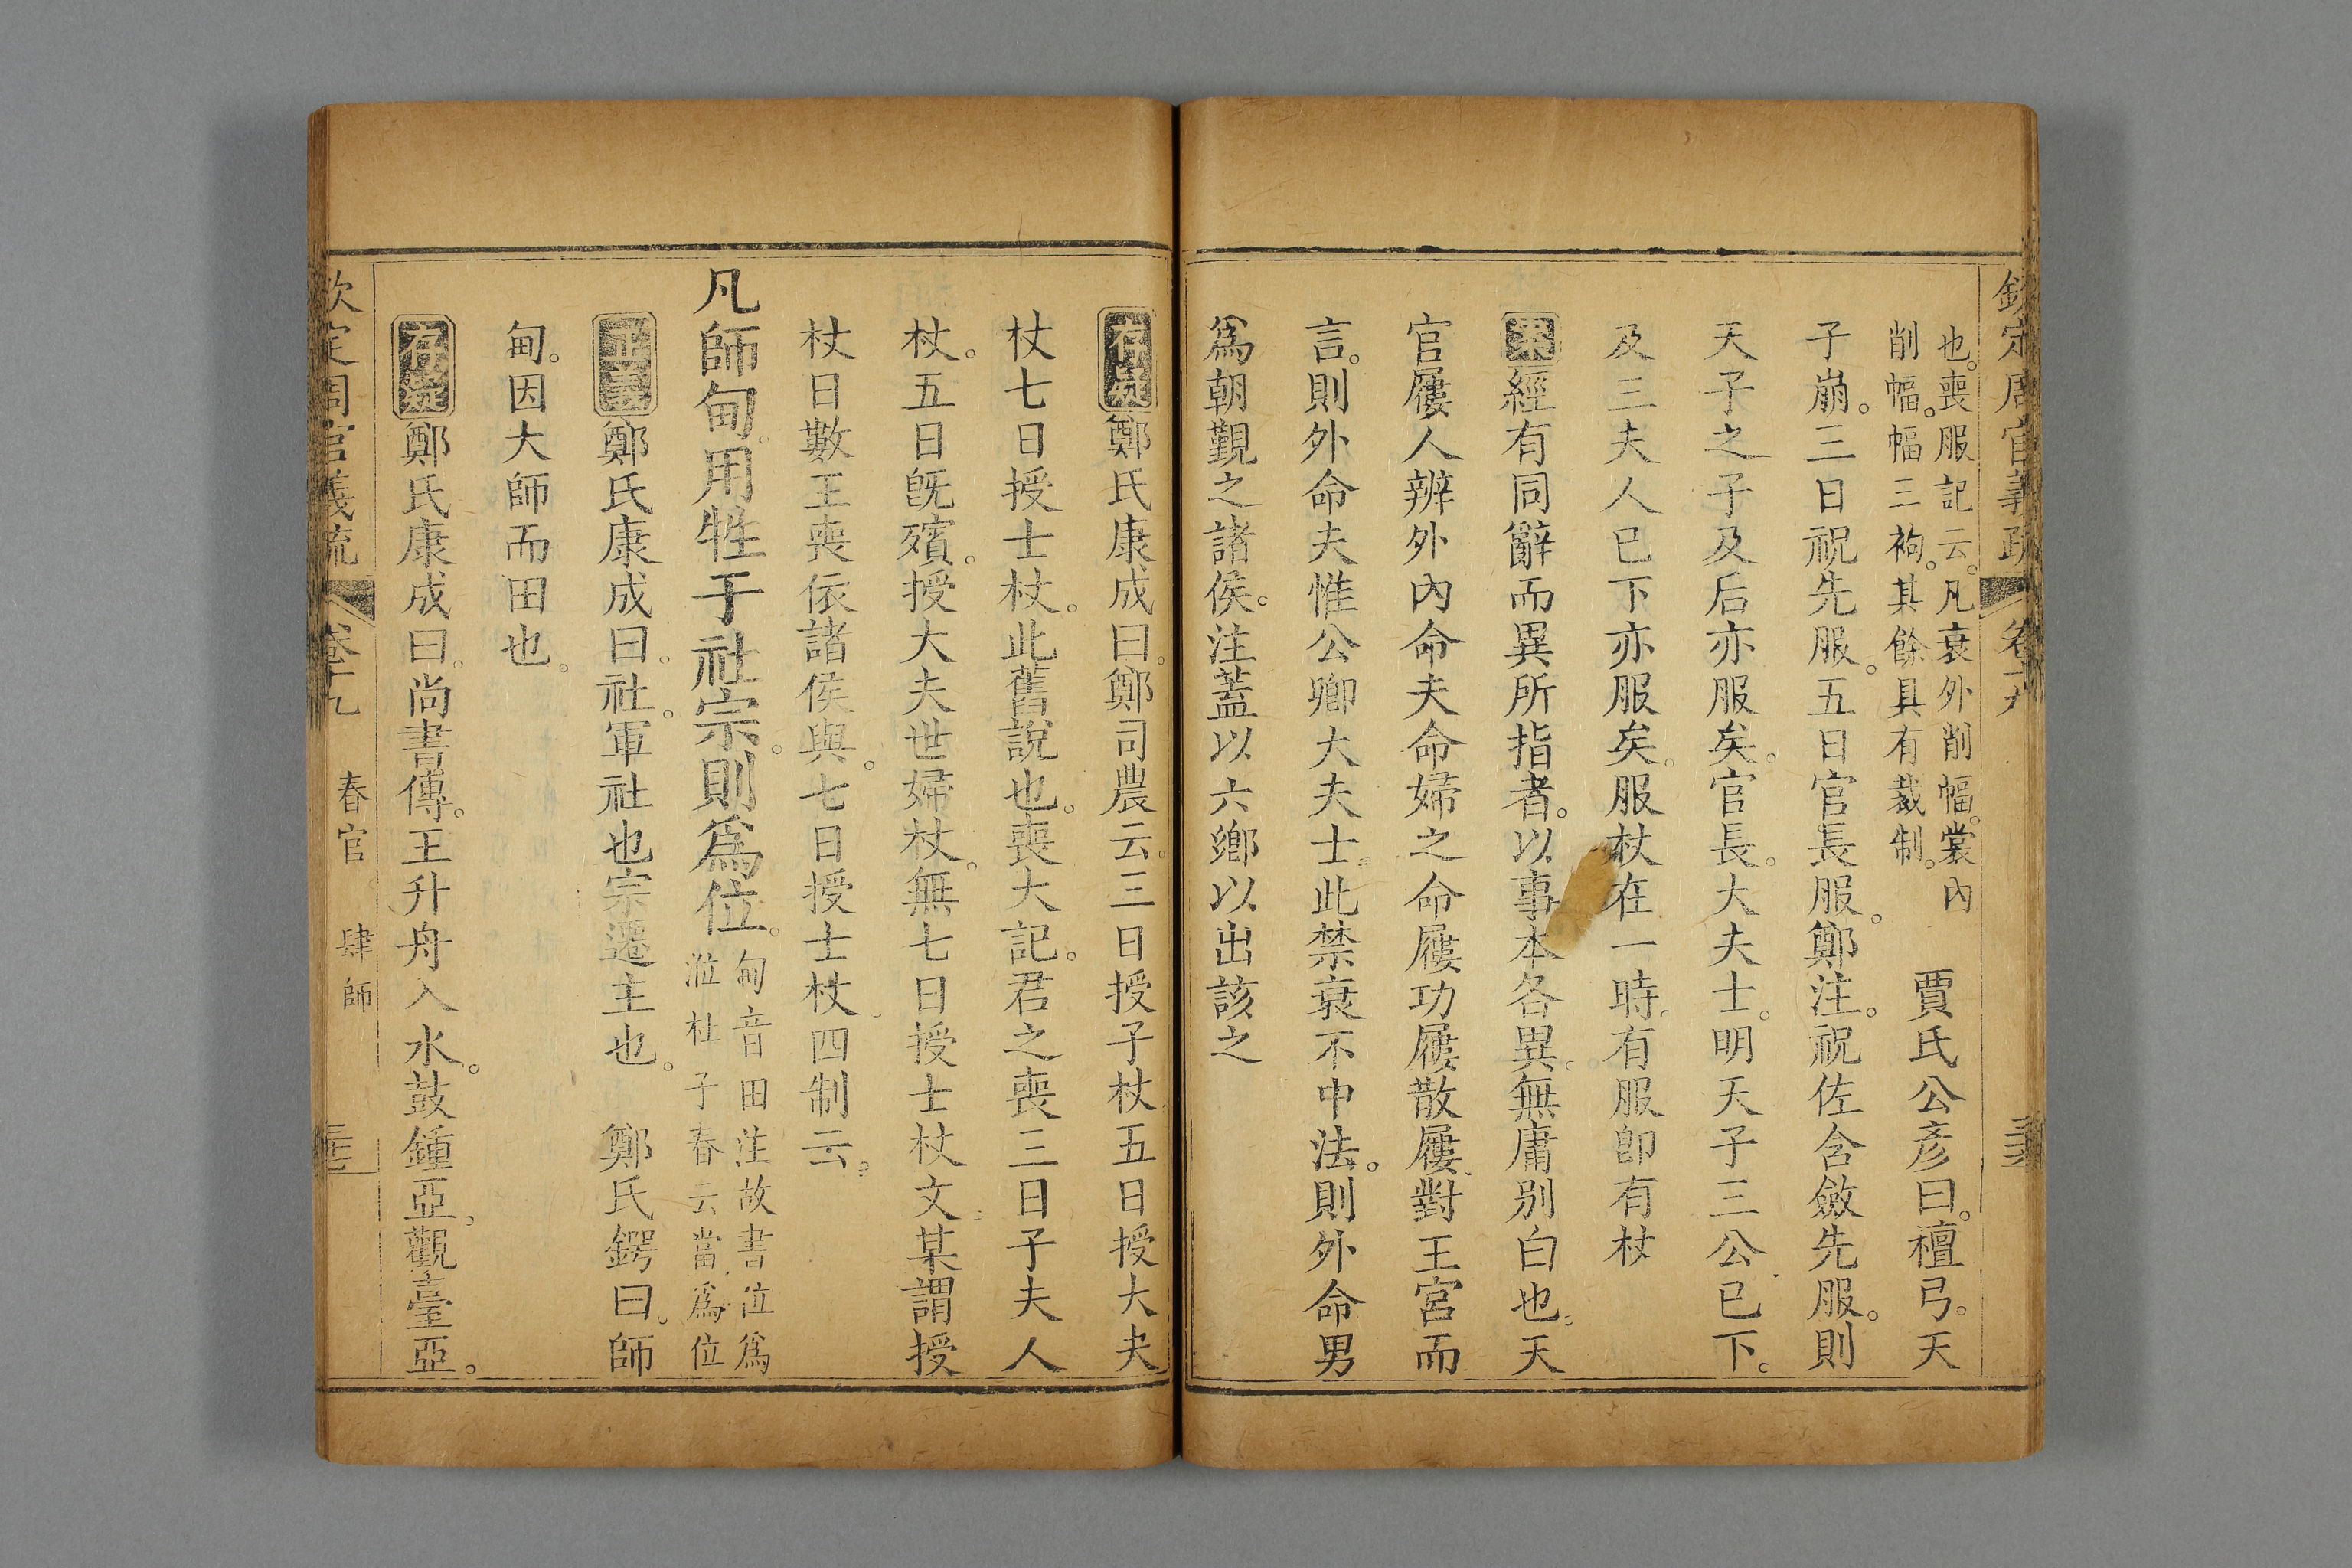 欽定周官義疏 卷十九
也。喪服記云。凡衰外削幅。裳內
削幅。幅三袧。其餘具有裁制。
賈氏公彥曰。檀弓。天
子崩。三日祝先服。五日官長服。鄭注。祝佐含斂先服。則
天子之子及后亦服矣。官長。大夫士。明天子三公已下。
及三夫人已下亦服矣。服杖在一時。有服卽有杖
案經有同辭而異所指者。以事本各異。無庸別白也。天
官屨人辨外內命夫命婦之命屨功屨散屨。對王宮而
言。則外命夫惟公卿大夫士。此禁衰不中法。則外命男
爲朝覲之諸侯。注蓋以六鄉以出該之
存疑鄭氏康成曰。鄭司農云。三日授子杖五日授大夫
杖七日授士杖。此舊說也。喪大記。君之喪三日子夫人
杖。五日旣殯。授大夫世婦杖。無七日授士杖文。某謂授
杖日數王喪依諸侯與。七日授士杖四制云。
凡師甸。用牲于社宗。則爲位。
甸音田注故書位爲
涖杜子春云當爲位
正義鄭氏康成曰。社。軍社也宗遷主也。 鄭氏鍔曰。師
甸。因大師而田也。
存疑鄭氏康成曰。尚書傳。王升舟入水。鼓鍾亞。觀臺亞。
欽定周官義疏 卷十九 春官 肆師